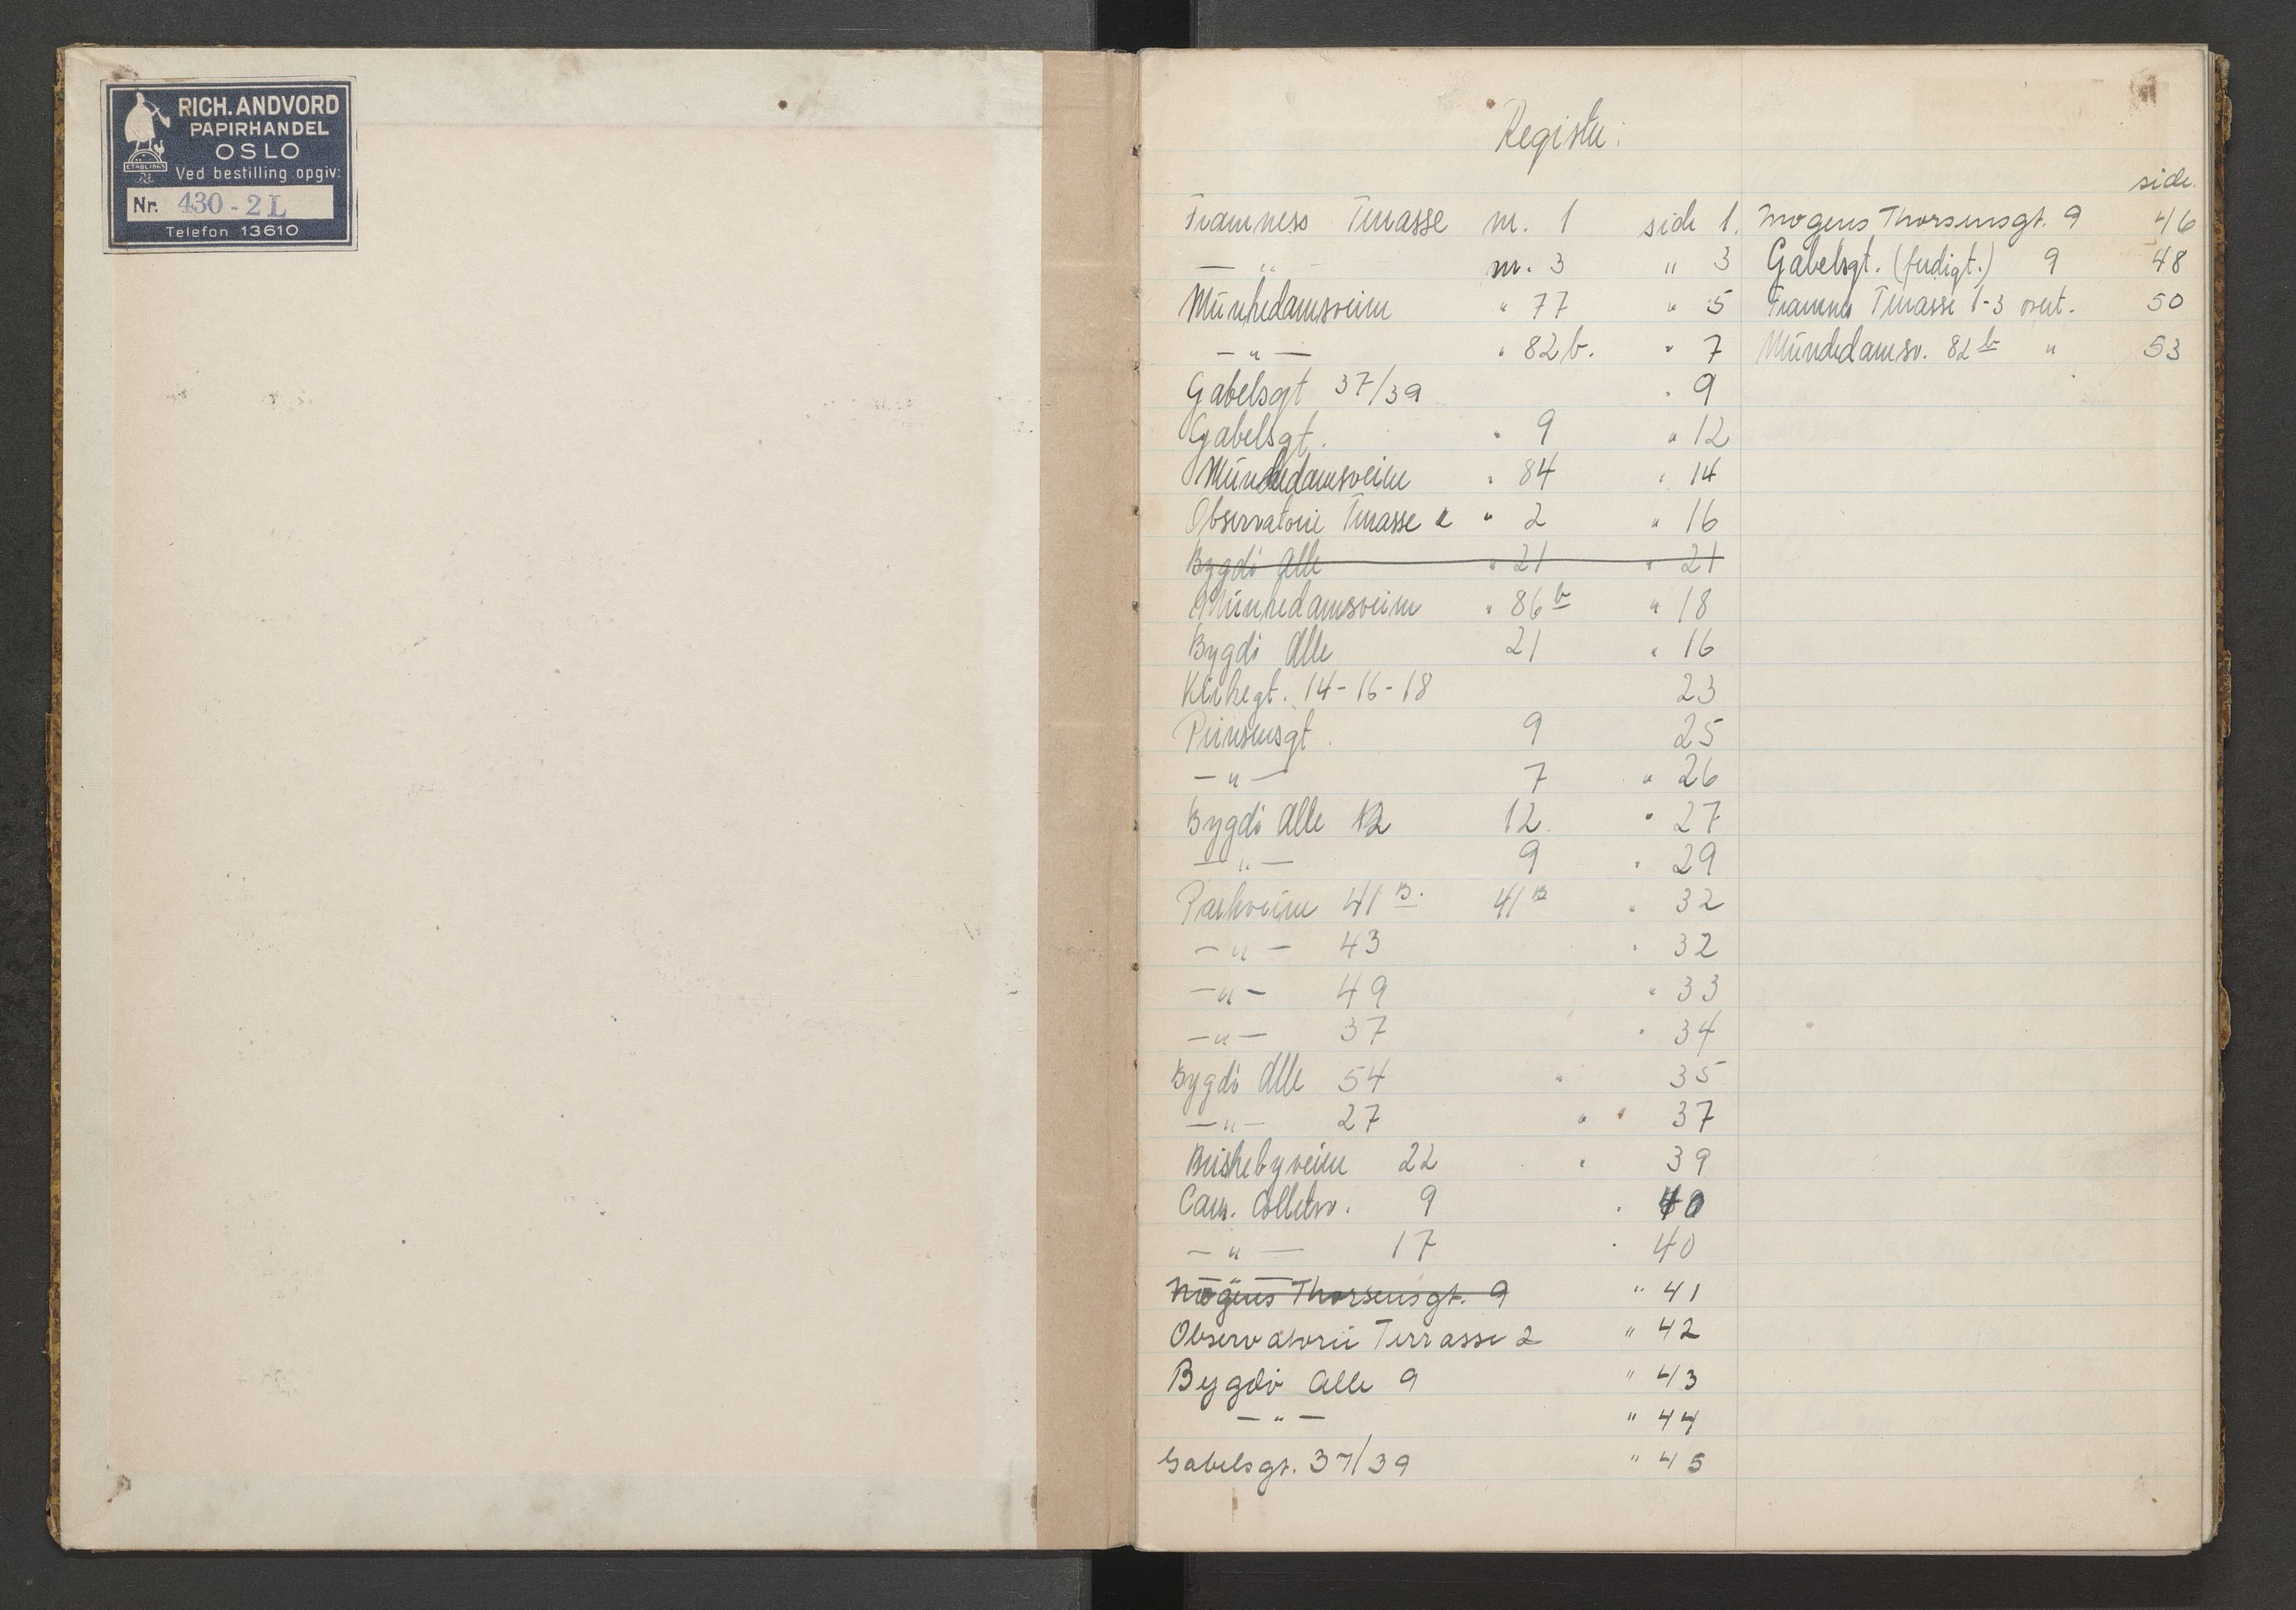 RICH. ANDVORD
PAPIRHANDEL
OSLO
ETABL. 1865
Ved bestilling opgiv:
Nr. 430-2L
Telefon 13610
Register:
Framness Terrasse nr. 1 side 1.
— " — nr. 3 " 3
Munkedamsveien " 77 " 5
— " — " 82b. " 7
Gabelsgt 37/39 " 9
Gabelsgt. " 9 " 12
Munkedamsveien " 84 " 14
Observatorie Terrasse " 2 " 16
Bygdö Alle " 21 " 21
Munkedamsveien " 86b " 18
Bygdö Alle 21 " 16
Kirkegt. 14-16-18 23
Prinsensgt. 9 25
— " — 7 " 26
Bygdö Alle 12 12 " 27
— " — 9 " 29
Parkveien 41B. 41B " 32
— " — 43 " 32
— " — 49 " 33
— " — 37 " 34
Bygdö Alle 54 " 35
— " — 27 " " 37
Briskebyveien 22 " 39
Cam. Colletsv. 9 " 40
— " — 17 " 40
— " —
Mogens Thorsensgt. 9 " 41
Observatorie Terrasse 2 " 42
Bygdö Alle 9 " 43
— " — " 44
Gabelsgt. 37/39 " 45
side.
Mogens Thorsensgt. 9 46
Gabelsgt. (ferdigt.) 9 48
Framnes Terrasse 1-3 50
Munkedamsv. 82b " 53